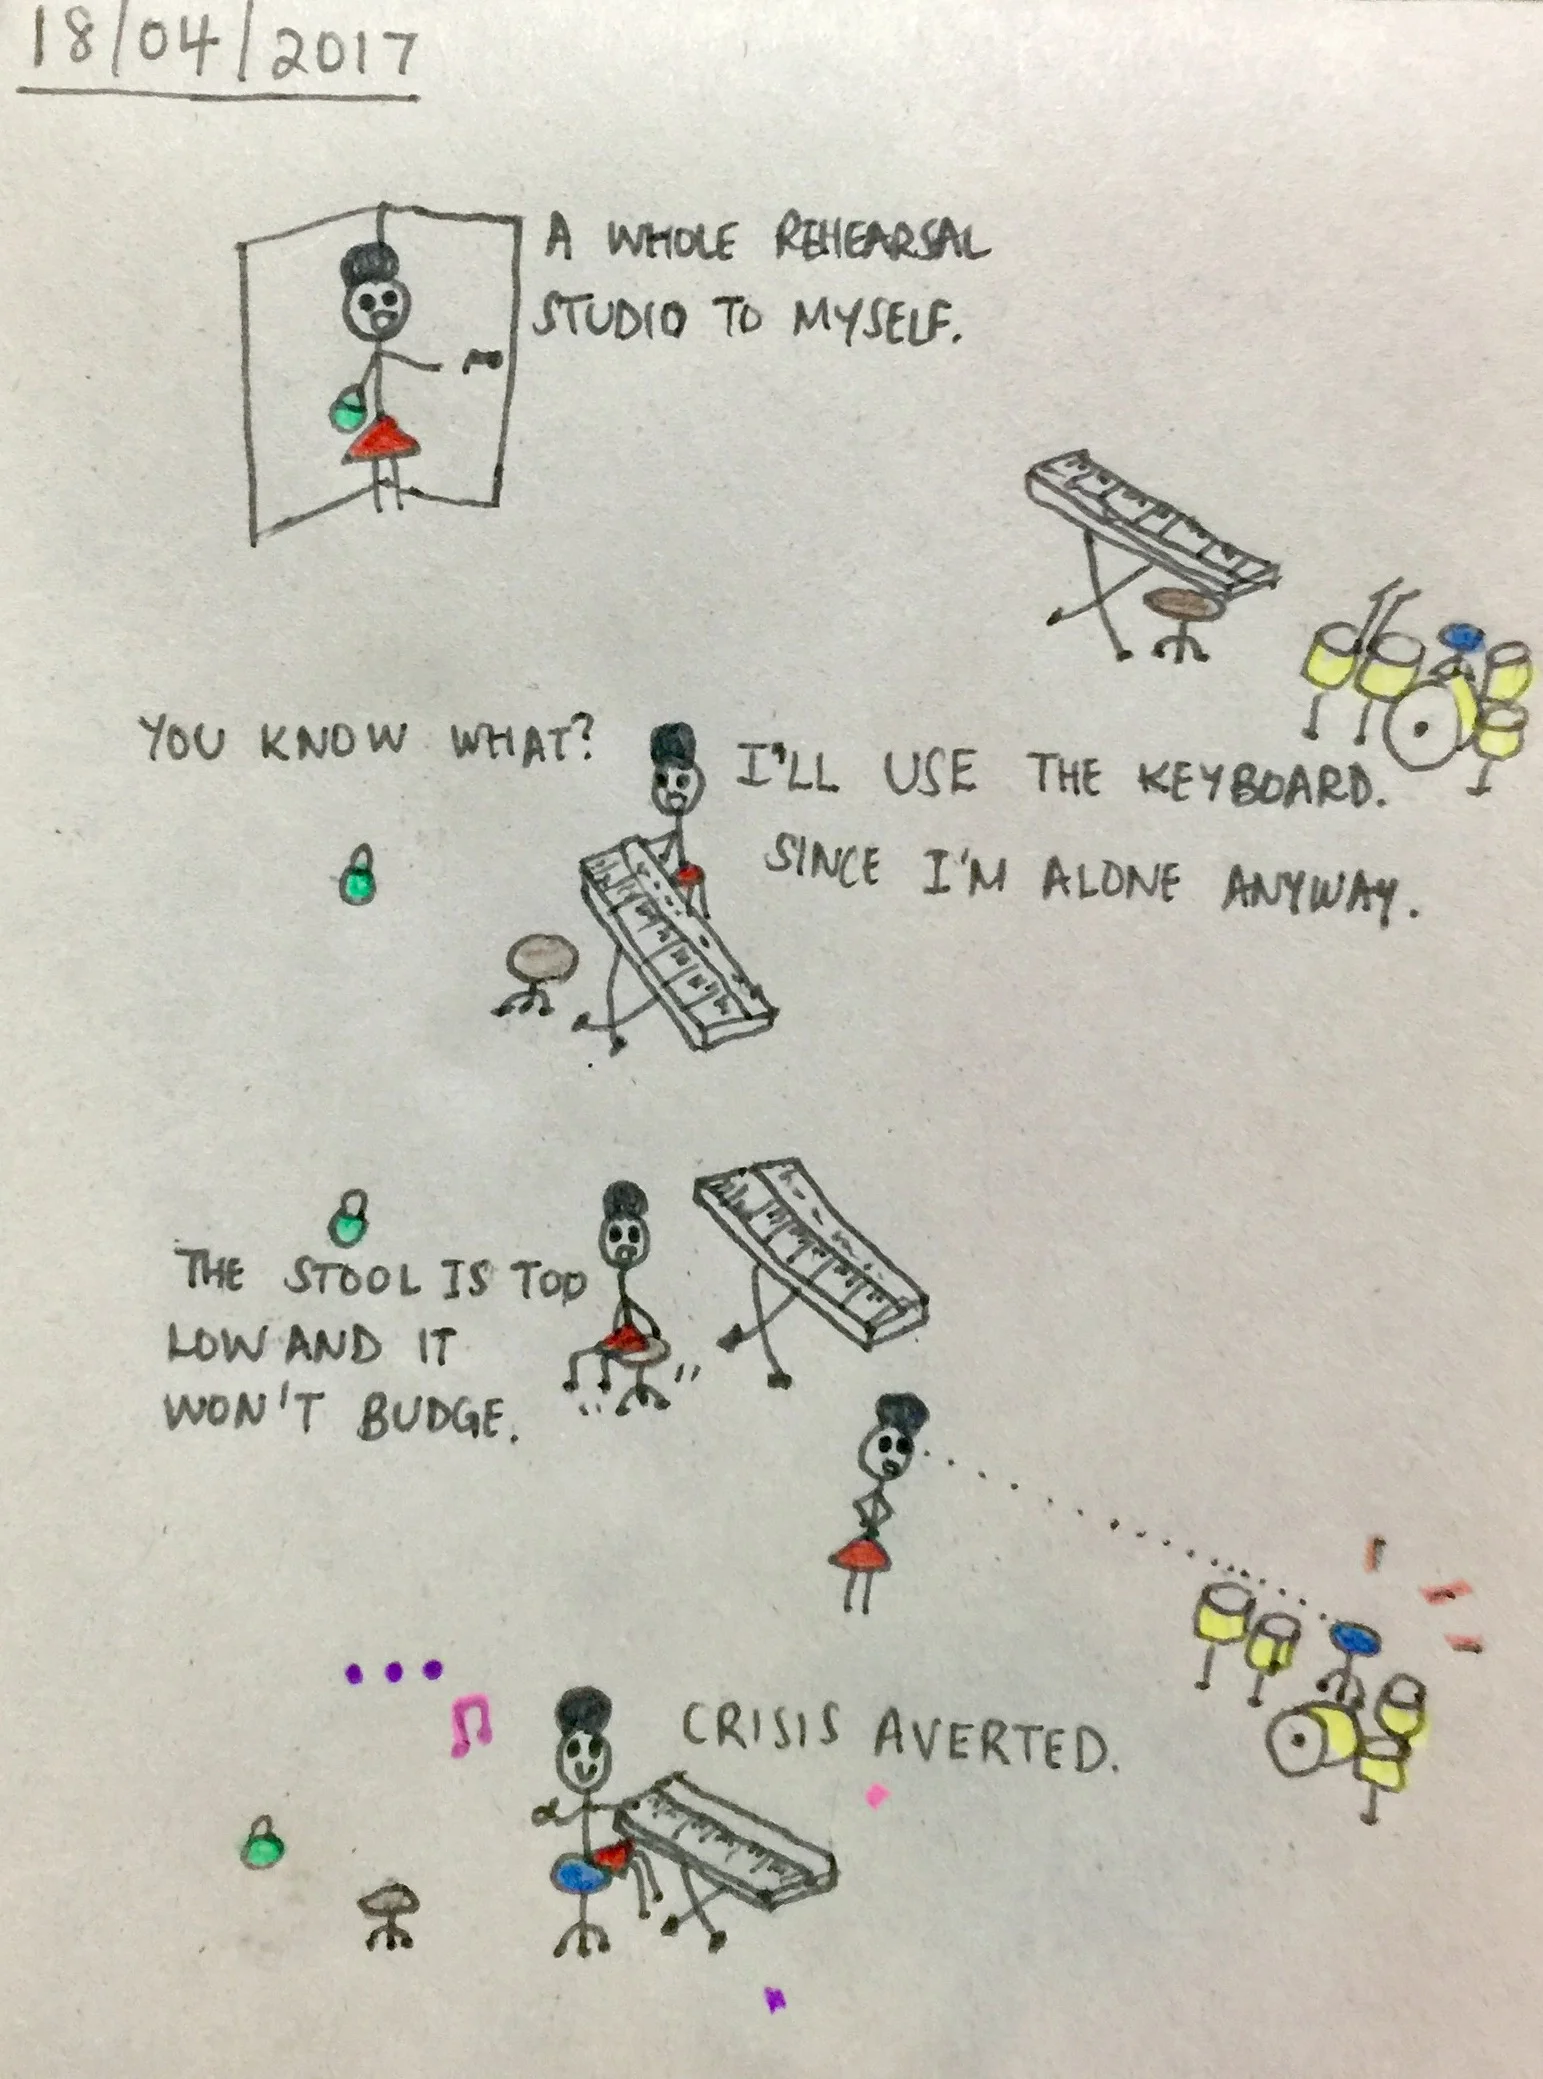 18/04/2017
A WHOLE REHEARSAL
STUDIO TO MYSELF.
YOU KNOW WHAT?
I'LL USE THE KEYBOARD.
SINCE I'M ALONE ANYWAY.
THE STOOL IS TOO
LOW AND IT
WON'T BUDGE.
CRISIS AVERTED.